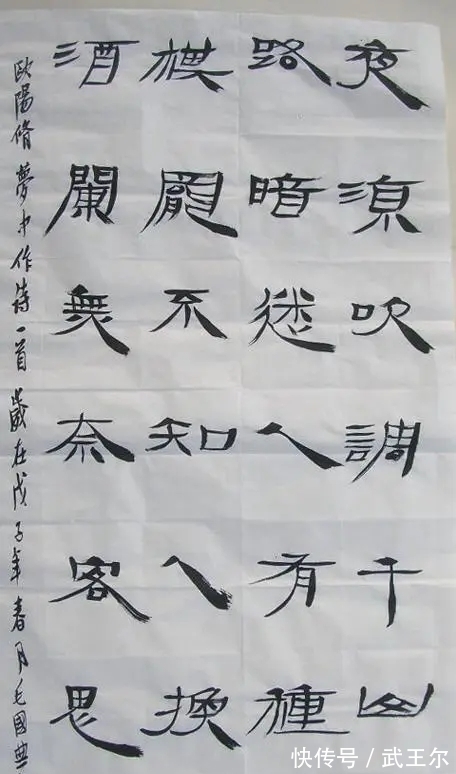 夜涼吹調千山
路暗迷人有種
棋罷不知人換
酒闌無奈客思
歐陽脩夢中作詩一首 歲在戊子年春月毛國典
快传号 / 武王尔